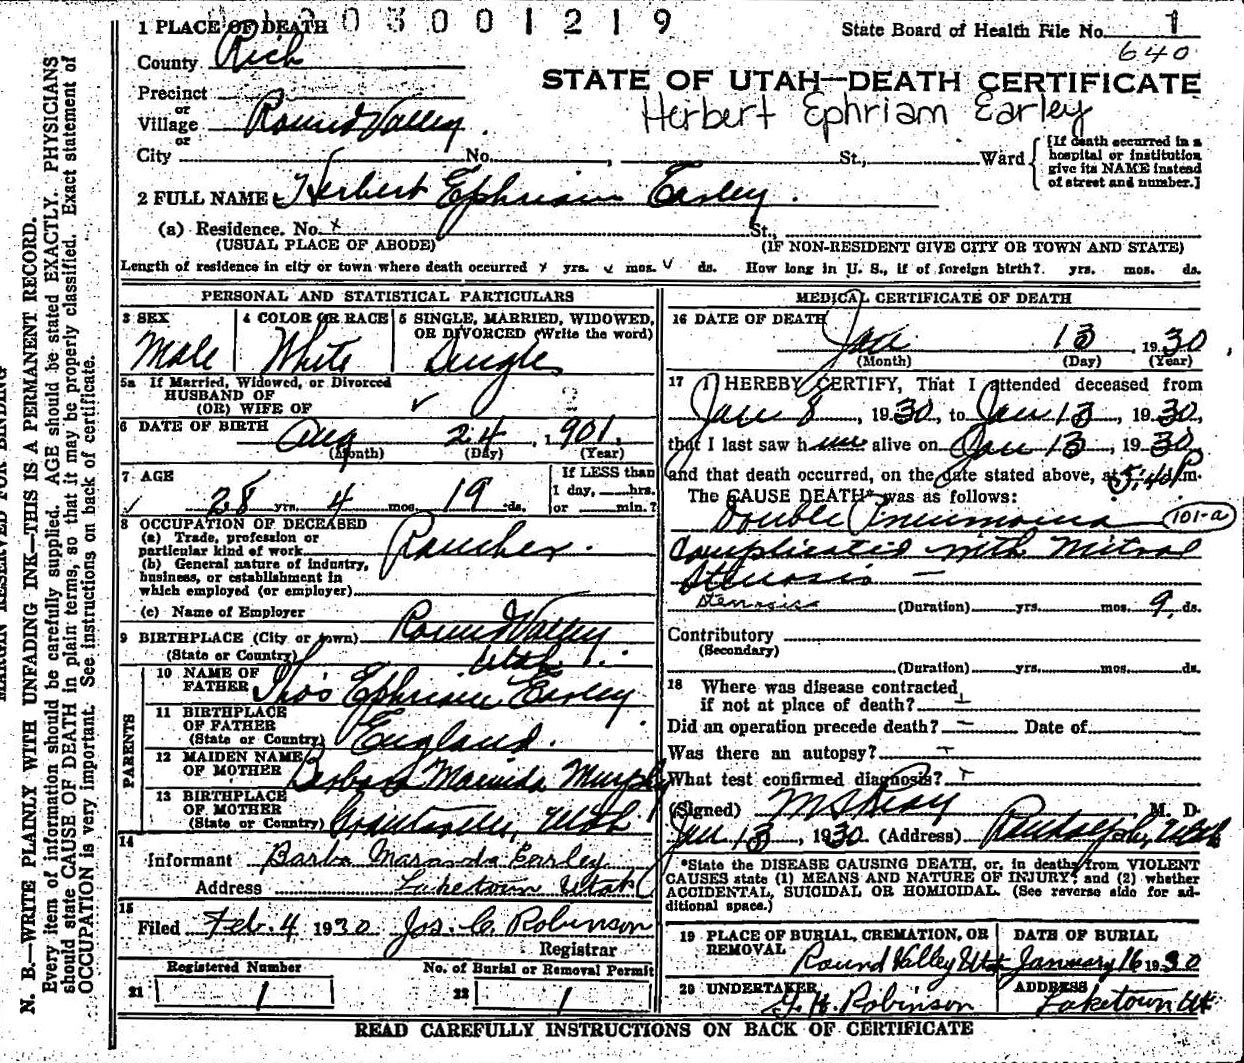 1 PLACE OF DEATH
3 0 0 1 2 1 9
State Board of Health File No. 1
640
County Rich
STATE OF UTAH—DEATH CERTIFICATE
Precinct
or
Village Round Valley.
or
Herbert Ephriam Earley
City No. , St., Ward
[If death occurred in a
hospital or institution
give its NAME instead
of street and number.]
2 FULL NAME Herbert Ephriam Earley.
(a) Residence. No. x St.,
(USUAL PLACE OF ABODE) (IF NON-RESIDENT GIVE CITY OR TOWN AND STATE)
Length of residence in city or town where death occurred yrs. mos. ds. How long in U. S., if of foreign birth? yrs. mos. ds.
PERSONAL AND STATISTICAL PARTICULARS
3 SEX 4 COLOR OR RACE 5 SINGLE, MARRIED, WIDOWED,
OR DIVORCED (Write the word)
Male White Single
5a If Married, Widowed, or Divorced
HUSBAND OF
(OR) WIFE OF
6 DATE OF BIRTH Aug 24, 1901.
(Month) (Day) (Year)
7 AGE
If LESS than
1 day, hrs.
or min.?
28 yrs. 4 mos. 19 ds.
8 OCCUPATION OF DECEASED
(a) Trade, profession or
particular kind of work Rancher.
(b) General nature of industry,
business, or establishment in
which employed (or employer)
(c) Name of Employer
9 BIRTHPLACE (City or town) Round Valley
(State or Country) Utah.
PARENTS
10 NAME OF
FATHER Tho's Ephriam Earley
11 BIRTHPLACE
OF FATHER
(State or Country) England.
12 MAIDEN NAME
OF MOTHER Barbara Marinda Murphy
13 BIRTHPLACE
OF MOTHER
(State or Country) Grantsville, Utah
14
Informant Barba Maranda Earley
Address Laketown Utah
15
Filed Feb. 4 1930 Jos. C. Robinson
Registrar
Registered Number No. of Burial or Removal Permit
21 1 22 1
MEDICAL CERTIFICATE OF DEATH
16 DATE OF DEATH
Jan 13 1930
(Month) (Day) (Year)
17 I HEREBY CERTIFY, That I attended deceased from
Jan 8, 1930, to Jan 13, 1930,
that I last saw him alive on Jan 13, 1930,
and that death occurred, on the date stated above, at 5:40 P.m.
The CAUSE DEATH* was as follows:
Double Pneumonia 101-a
complicated with Mitral
Stenosis —
Stenosis (Duration) yrs. mos. 9 ds.
Contributory
(Secondary)
(Duration) yrs. mos. ds.
18 Where was disease contracted
if not at place of death?
Did an operation precede death? — Date of
Was there an autopsy?
What test confirmed diagnosis?
(Signed) M. D.
Jan 13, 1930 (Address) Randolph, Utah
*State the DISEASE CAUSING DEATH, or, in deaths from VIOLENT
CAUSES state (1) MEANS AND NATURE OF INJURY; and (2) whether
ACCIDENTAL, SUICIDAL OR HOMICIDAL. (See reverse side for ad-
ditional space.)
19 PLACE OF BURIAL, CREMATION, OR
REMOVAL
Round Valley Utah
DATE OF BURIAL
January 16 1930
20 UNDERTAKER
Robinson
ADDRESS
Laketown Ut
READ CAREFULLY INSTRUCTIONS ON BACK OF CERTIFICATE
MARGIN RESERVED FOR BINDING
N. B.—WRITE PLAINLY WITH UNFADING INK—THIS IS A PERMANENT RECORD.
Every item of information should be carefully supplied. AGE should be stated EXACTLY. PHYSICIANS
should state CAUSE OF DEATH in plain terms, so that it may be properly classified. Exact statement of
OCCUPATION is very important. See instructions on back of certificate.